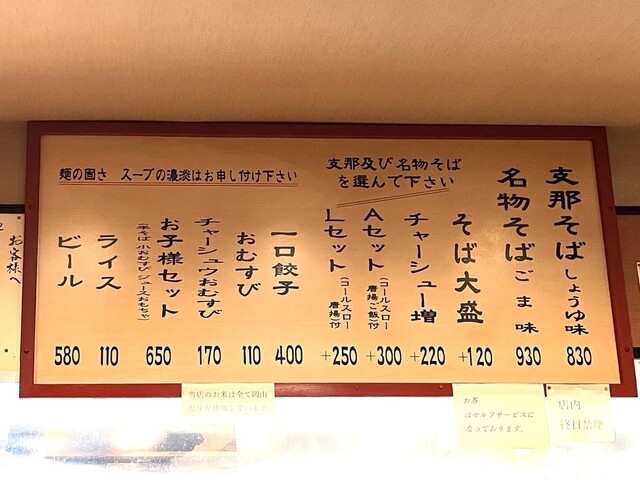 支那そば しょうゆ味 830
名物そば ごま味 930
支那及び名物そば
を選んで下さい
そば大盛 +120
チャーシュー増 +220
Aセット (コールスロー 唐揚ご飯)付 +300
Lセット (コールスロー 唐揚)付 +250
麺の固さ スープの濃淡はお申し付け下さい
一口餃子 400
おむすび 110
チャーシュウおむすび 170
お子様セット (半そば 小おむすび ジュースおもちゃ) 650
ライス 110
ビール 580
お客様へ
当店のお米は全て岡山
県産を使用しています
お茶
はセルフサービスに
なっております。
店内
終日禁煙